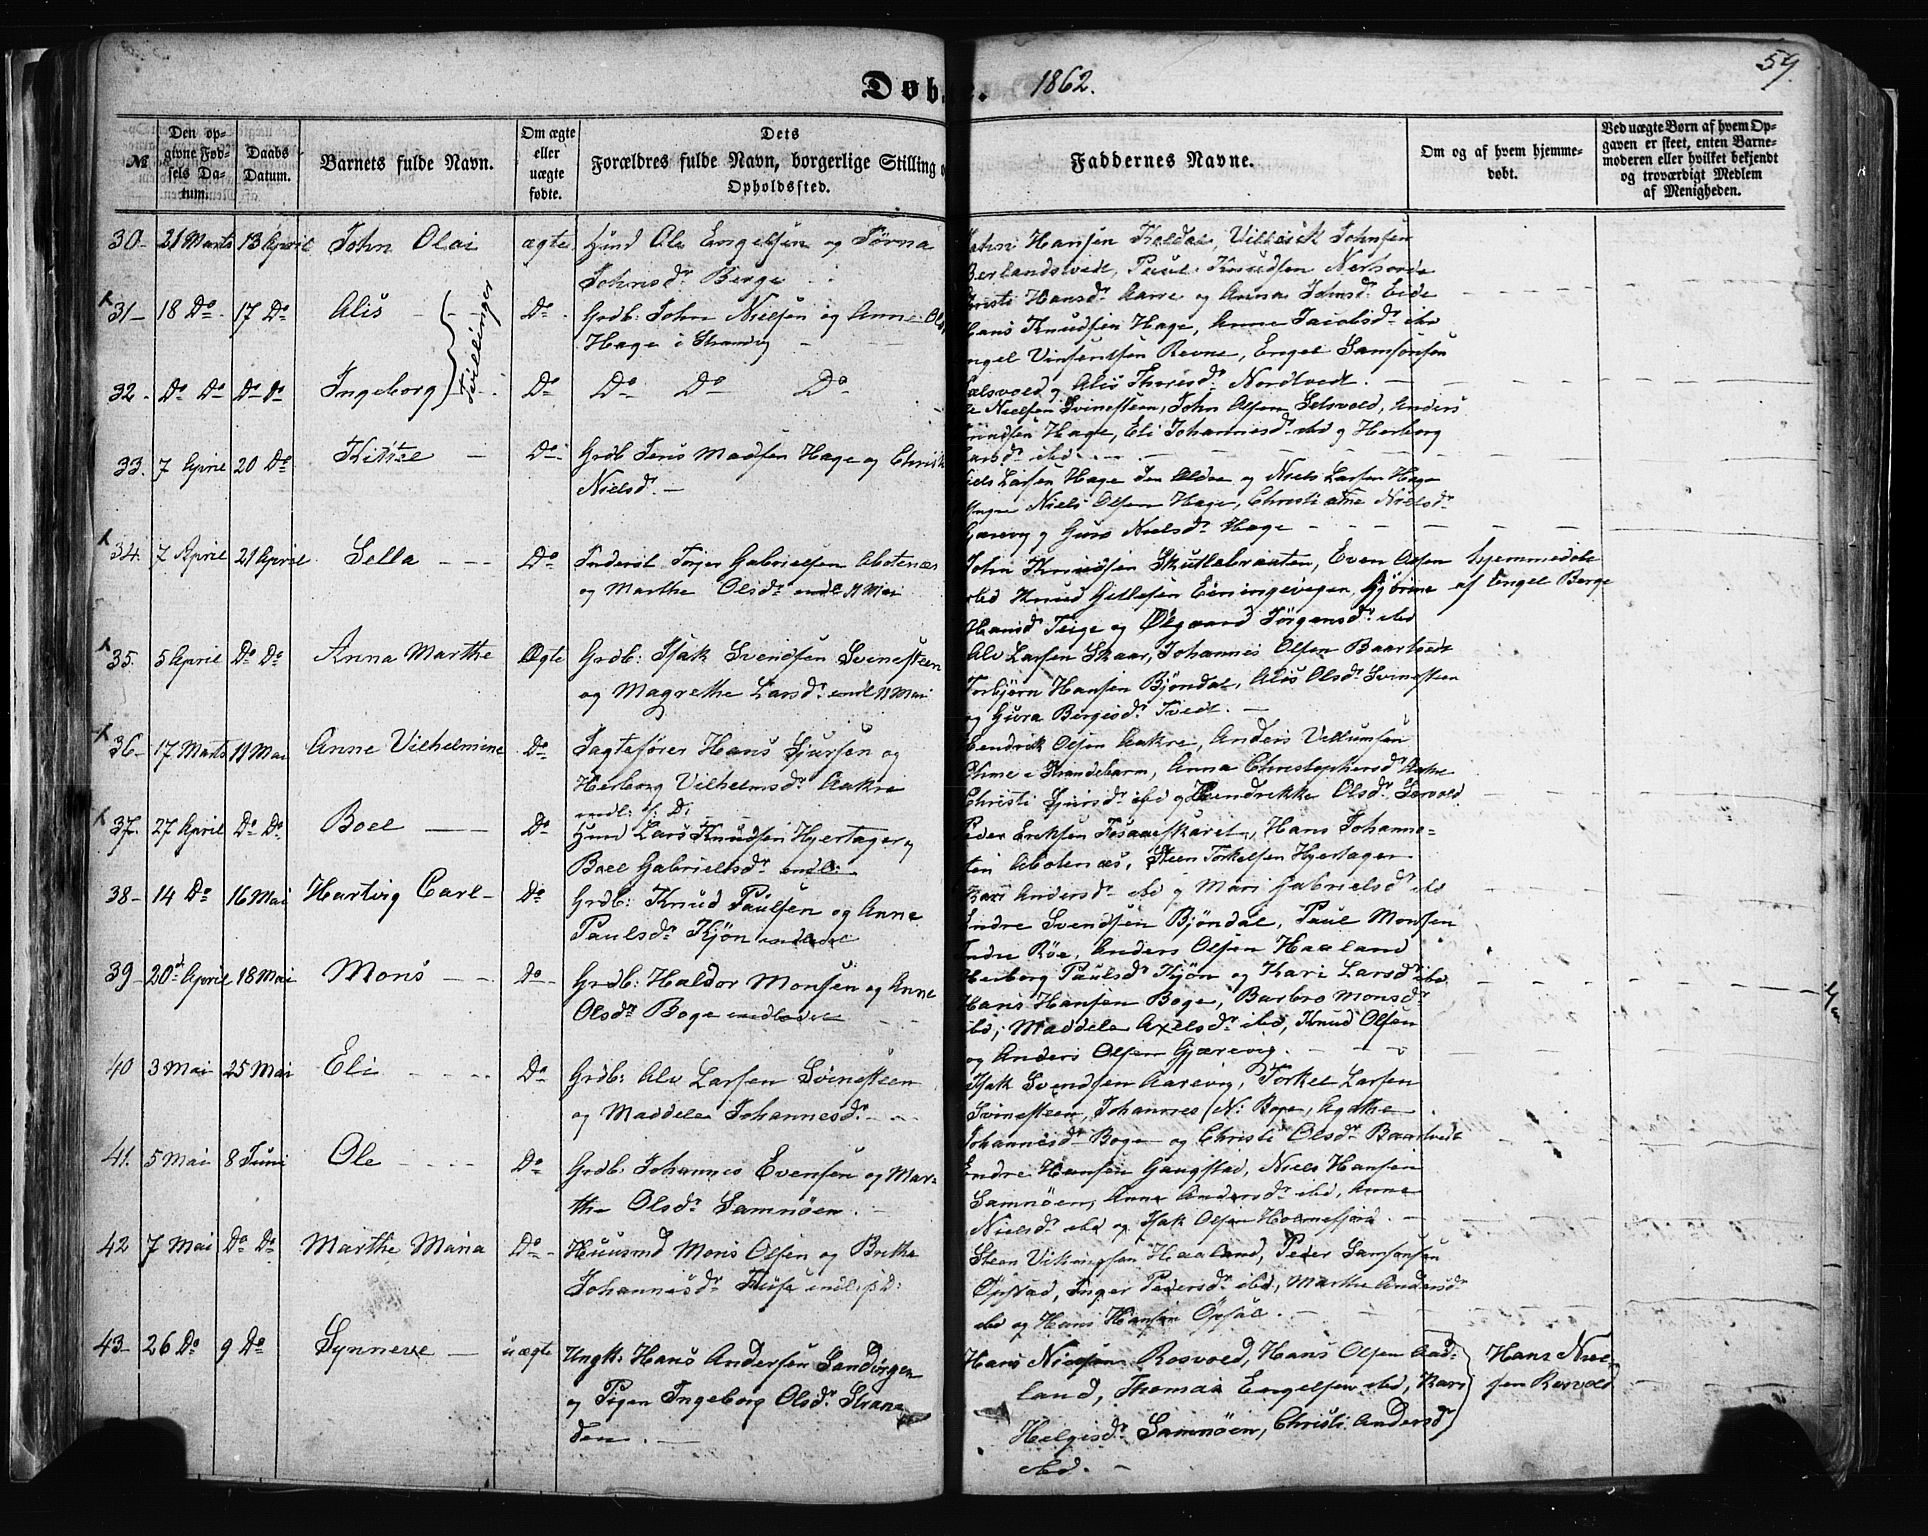 Døb
1862.
57.
№
Den op-
givne Fød-
sels Da-
tum.
Daabs
Datum.
Barnets fulde Navn.
Om ægte
eller
uægte
fødte.
Dets
Forældres fulde Navn, borgerlige Stilling o
Opholdssted.
Faddernes Navne.
Om og af hvem hjemme-
døbt.
Ved uægte Børn af hvem Op-
gaven er skeet, enten Barne-
moderen eller hvilket bekjendt
og troværdigt Medlem
af Menigheden.
30 21 Marts 13 April John Olai ægte Huusmd Ole Engelsen og Tørna
Johnsdr Berge
John Hansen Koldal, Vilhelk Johnsen
Berlandstvedt, Paul Knudsen Nerhovde
Christi Hansdr Aarre og Anna Johnsdr Eide
31 18 Do 17 Do Alis Do Grdb: John Nielsen og Anne Ols
Hage i Strandvig
Tvillinger
Hans Knudsen Hage, Anne Jacobsdr ibd
Engel Vinsentsen Revne, Engel Samsonsen
Selsvold og Alis Thoresdr Nordtvedt
32 Do Do Do Do Ingeborg Do Do Do Do
Ole Nielsen Svinesteen, John Olsen Selsvold, Anders
Knudsen Hage, Eli Johannesdr ibd og Herborg
Larsdr ibd
33. 7 April 20 Do Do Grdb Jens Madsen Hage og Christi
Nielsd.
Niels Larsen Hage den Eldre og Niels Larsen Hage
Yngre Niels Olsen Hage, Christi ane Nielsdr
Gjærevig og Guro Nielsdr Hage
34. 7 April 21 April Sella Do Inderst Torger Gabrielsen Abotenæs
og Marthe Olsdr indl 11 Mai
John Knudsen Skutlebraaten, Even Olsen
ibd Knud Gitlesen Einingevigen, Gjørine
Hansd Teige og Ølgaard Jörgensdr ibd
hjemmedøbt
af Engel Berge
35. 5 April Do Do Anna Marthe Ægte Grdb: Isak Svendsen Svinesteen
og Magrethe Larsdr indl 11 Mai
Alv Larsen Skaar, Johannes Olsen Baartvedt
Torbjørn Hansen Bjöndal, Alis Olsdr Svinesteen
og Gura Bergesdr Tvedt.
36 17 Marts 11 Mai Anne Vilhelmine Do Jagtefører Hans Sjursen og
Herborg Vilhelmsdr Aakre
indl: s: D:
Hendrik Olsen Aakre, Anders Villumsen
i Strandebarm, Anna Christophersd Aakre
Christi Sjursdr ibd og Hendrikke Olsdr
37. 27 April Do Do Boel Do Huusmd Lars Knudsen Hjertager og
Boel Gabrielsdr indl:
Peder Eriksen Fosaaeskaret, Hans Johanne-
sen Abotenæs, Steen Torkelsen Hjertager
Kari Andersdr ibd og Mari Gabrielsdr ibd
38 14 Do 16 Mai Hartvig Carl Do Grdb: Knud Paulsen og Anne
Paulsdr Kjøn indladet
Endre Svendsen Bjöndal, Paul Monsen
Indre Röe, Anders Olsen Haaland
Herborg Paulsdr Kjön og Kari Larsdr ibd
39 20de April 18 Mai Mons Do Grdb: Haldor Monsen og Anne
Olsdr Boge indladet
Hans Hansen Boge, Barbro Monsdr
ibd, Maddele Axelsdr ibd, Knud Olsen
og Anders Olsen Gjærevig.
40 3 Mai 25 Mai Eli Do Grdb: Alv Larsen Svinesteen
og Maddele Johannesdr
Isak Svendsen Aarevig, Torkel Larsen
Svinesteen, Johannes N: Boge, Agathe
Johannesdr Boge og Christi Olsdr Baartvedt
41. 5 Mai 8 Juni Ole Do Grdb: Johannes Evensen og Mar-
the Olsdr Samnöen.
Endre Hansen Gaugstad, Niels Hansen
Samnöen, Anna Andersdr ibd, Anne
Nielsdr ibd og Isak Olsen Holmefjord.
42 7 Mai Do Do Marthe Maria Do Huusmd Mons Olsen og Brithe
Johannesdr Fuse indl: s: D:
Steen Vikingsen Haaland, Peder Samsonsen
Opstad, Inger Pedersdr ibd, Marthe Andersdr
ibd og Hans Hansen Opsal.
43 26 Do 9 Do Synneve uægte Ungk: Hans Andersen Sandvigen
og Pigen Ingeborg Olsdr Stran
den.
Hans Nielsen Rosvold, Hans Olsen Aad-
land, Thomas Engelsen ibd, Kari
Helgesdr Samnöen, Christi Andersdr
ibd.
Hans Niel-
sen Rosvold